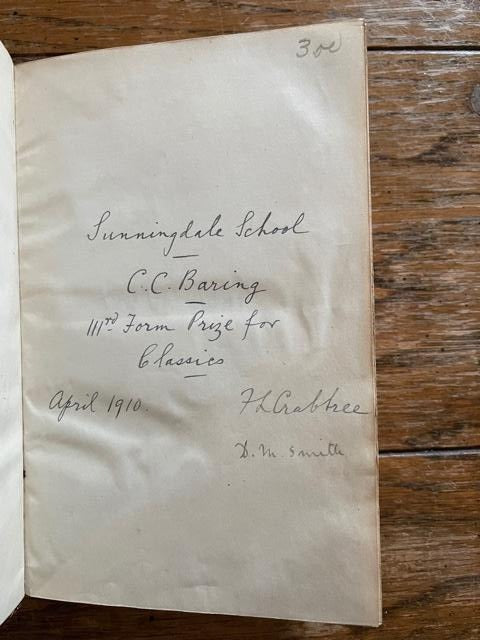 300
Sunningdale School
C.C. Baring
IIIrd Form Prize for
Classics
April 1910.
F L Crabtree
D. M. Smith